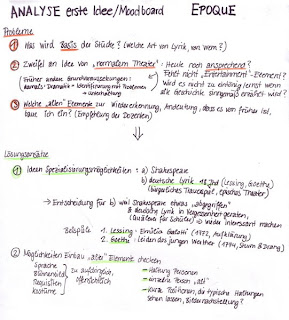 ANALYSE erste Idee/Moodboard EPOQUE
Probleme
1 Was wird Basis der Stücke? (welche Art von Lyrik, von wem?)
2 Zweifel an Idee von "normalem Theater": Heute noch ansprechend?
Fehlt nicht "Entertainment"-Element?
Früher andere Grundvoraussetzungen:
damals: Dramatik = Identifizierung mit Problemen
→ Unterhaltung
Wird es nicht zu eintönig lernst wenn
als Geschichte sinngemäß erzählt wird?
3 Welche "alten" Elemente zur Wiedererkennung, Andeutung, dass es von früher ist,
baue ich ein? (Empfehlung der Dozenten)
Lösungsansätze
1 Ideen Spezialisierungsmöglichkeiten: a) Shakespeare
b) deutsche Lyrik 18. Jhd (Lessing, Goethe)
(bürgerliches Trauerspiel, episches Theater)
→ Entscheidung für b) weil Shakespeare etwas "abgegriffen"
& deutsche Lyrik in Vergessenheit geraten,
(Qualität für Schüler) → wieder interessant machen
Beispiele 1. Lessing - Emilia Galotti (1772, Aufklärung)
2. Goethe - Leiden des jungen Werther (1774, Sturm & Drang)
2 Möglichkeiten Einbau "alter" Elemente checken
Sprache
Bühnenbild
Requisiten
Kostüme
zu aufdringlich,
offensichtlich
Haltung Personen
einzelne Person "alt"
kurze Positionen, die typische Haltungen
sehen lassen, Bildernachstellung?